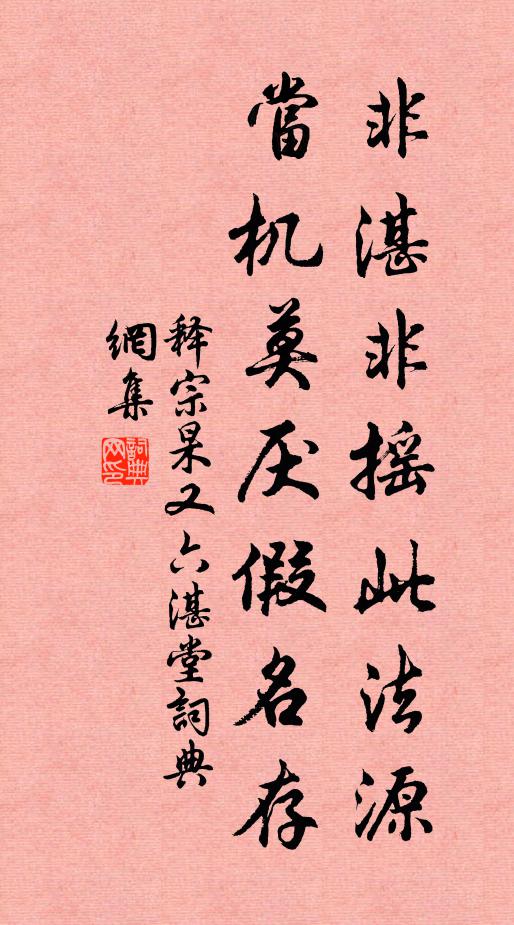 非湛非摇此法源
當机莫厌假名存
释宗杲又六湛堂詞典
網集
詞典網印